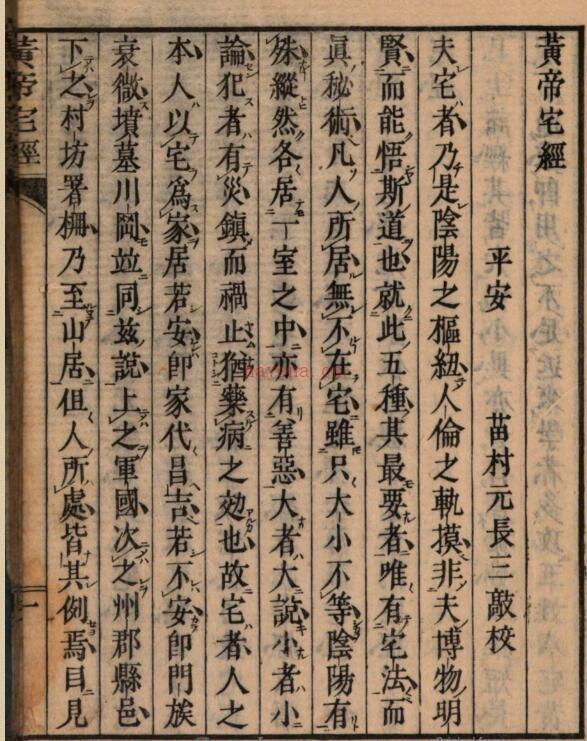 黃帝宅經
平安 苗村元長三敲校
夫宅者乃是陰陽之樞紐人倫之軌摸非夫博物明
賢而能悟斯道也就此五種其最要者唯有宅法而
眞秘術凡人所居無不在宅雖只大小不等陰陽有
殊縱然各居一室之中亦有善惡大者大說小者小
論犯者有災鎭而禍止猶藥病之効也故宅者人之
本人以宅爲家居若安卽家代昌吉若不安卽門族
衰微墳墓川岡竝同玆說上之軍國次之州郡縣邑
下之村坊署柵乃至山居但人所處皆其例焉目見
黃帝宅經
一